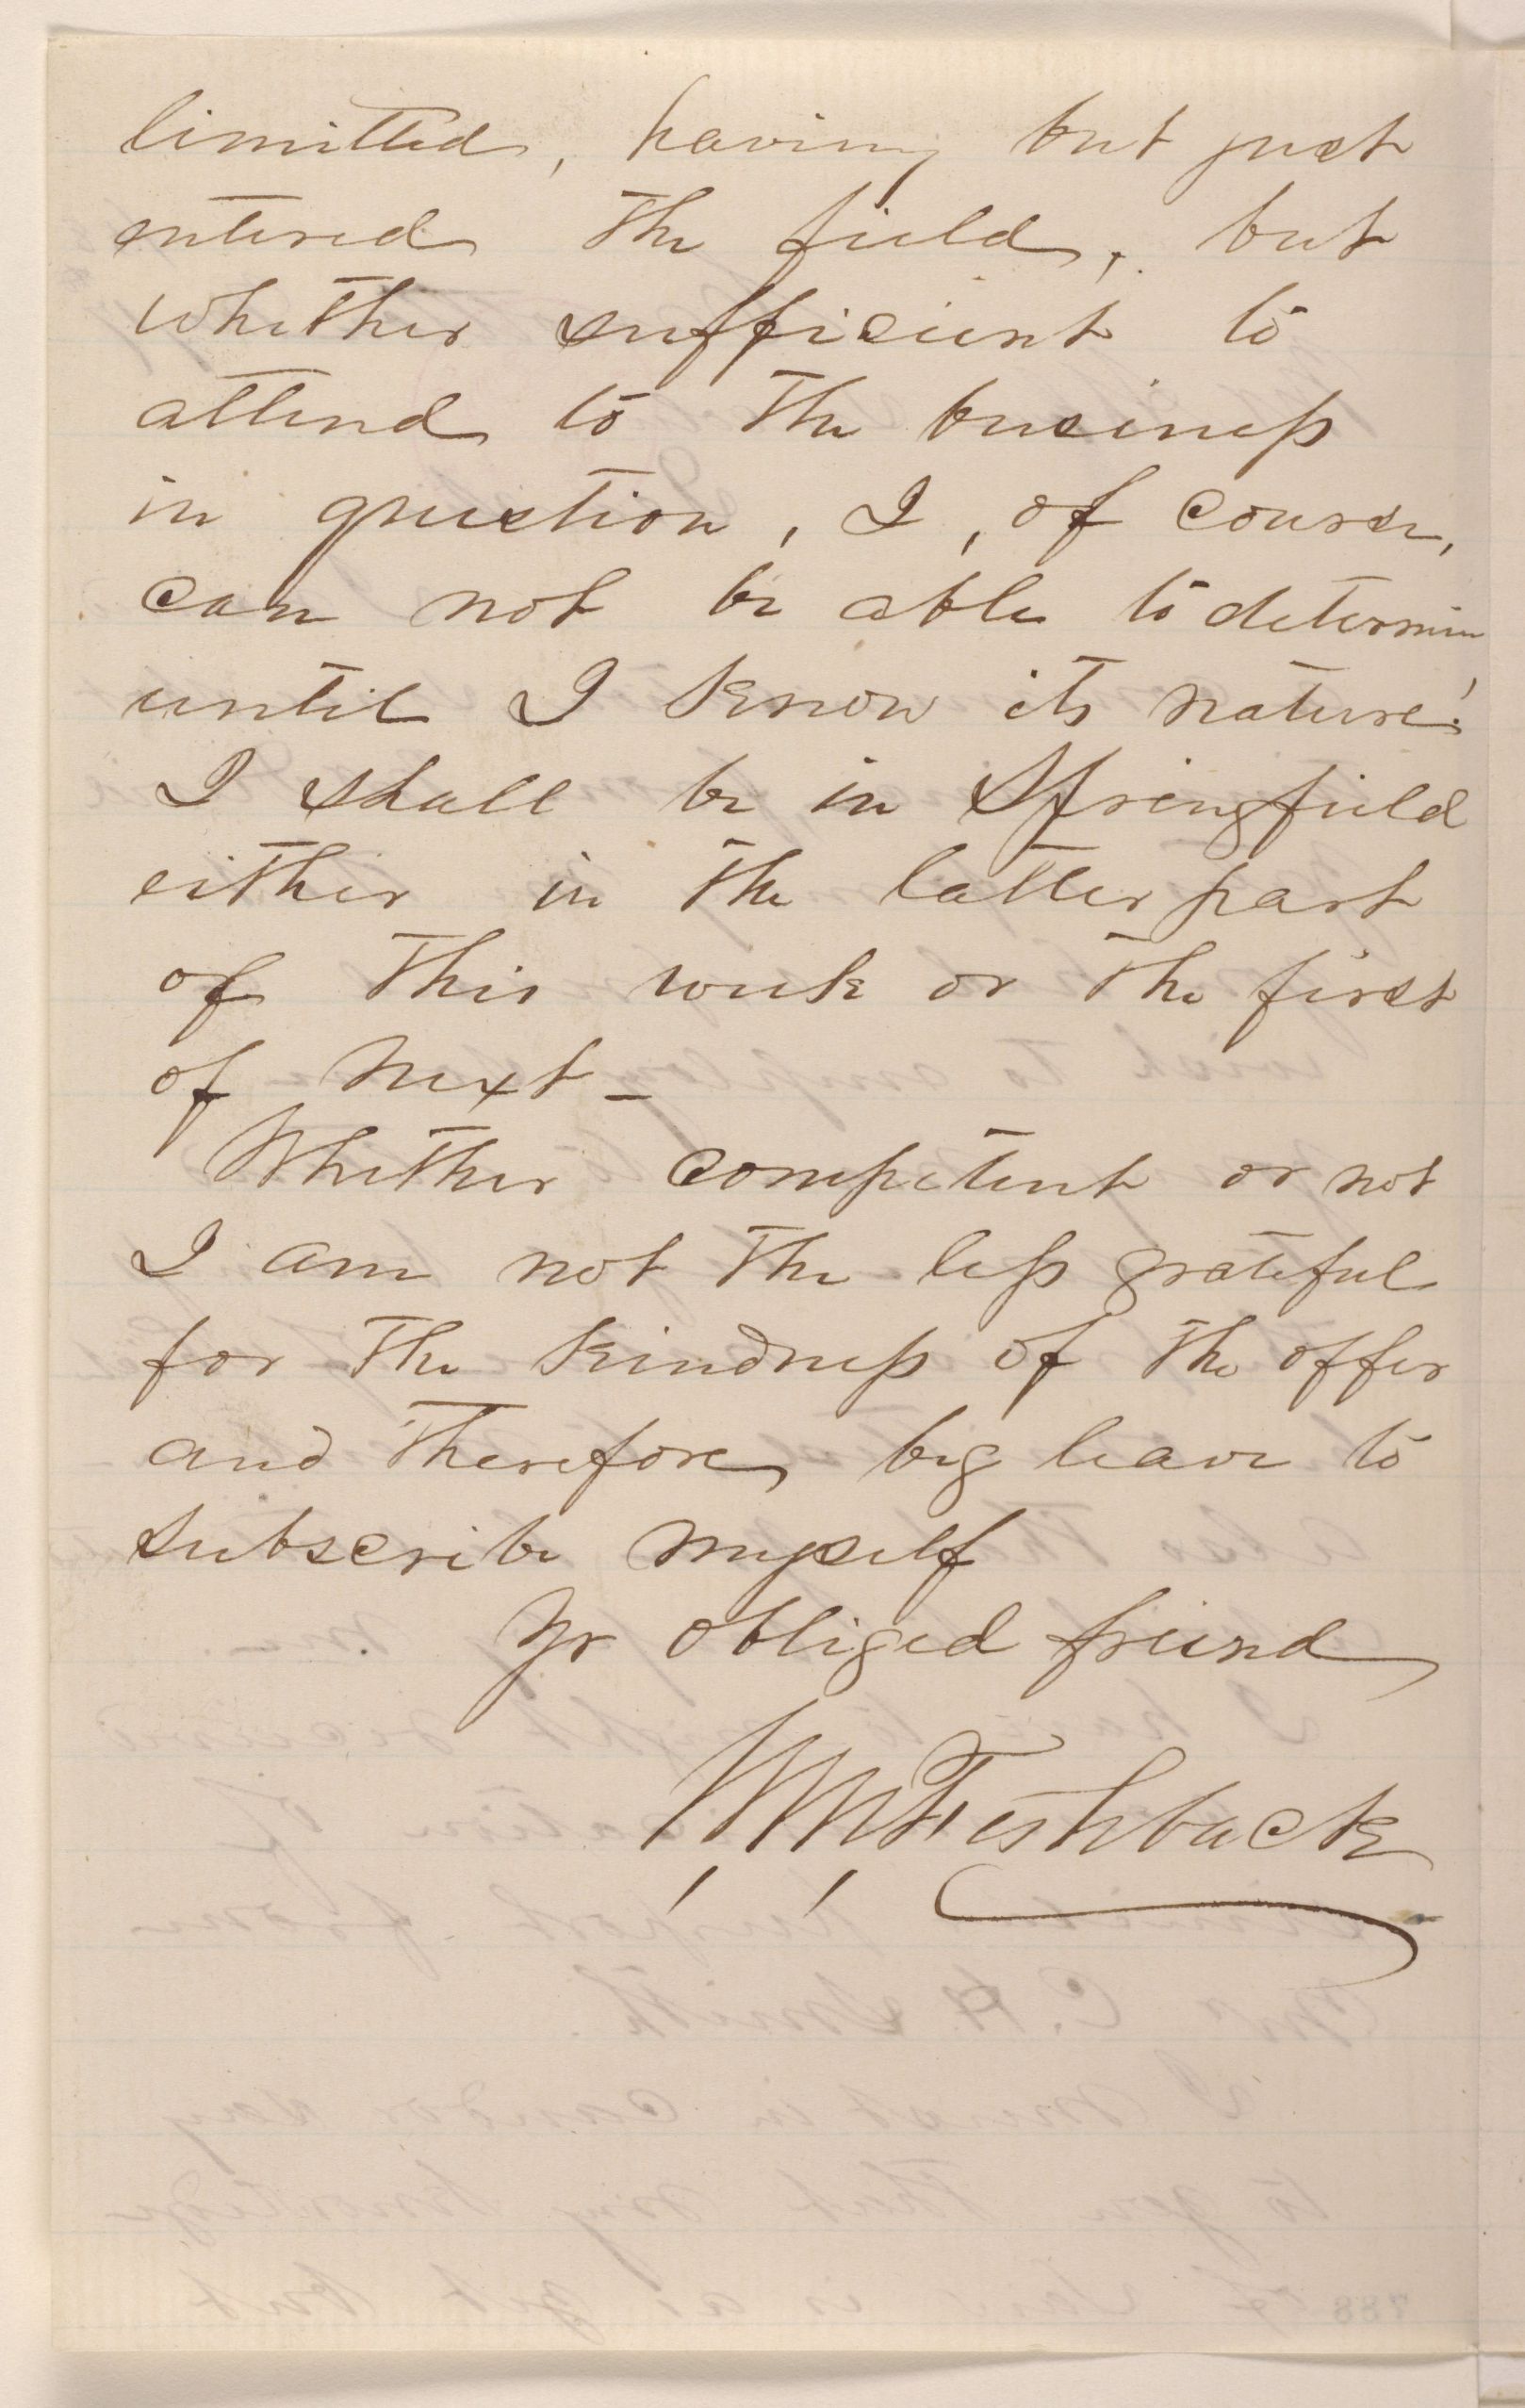 limitted, having but just
entered the field, but
whether sufficient to
attend to the business
in question, I, of course,
can not be able to determin
until I know its nature.
I shall be in Springfield
either in the latter part
of this week or the first
of next –
Whether competent or not
I am not the less grateful
for the kindness of the offer
and therefore beg leave to
subscribe myself
Yr obliged friend
WM Fishback